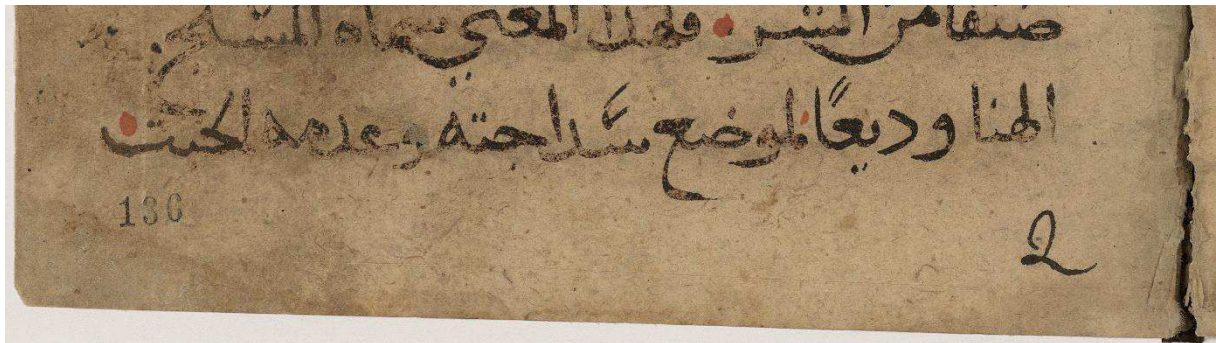 صنفا من الشر. فلهذا المعني سماه المسيح
الهنا وديعًا لموضع سداجته وعدمه الخبث
136
2